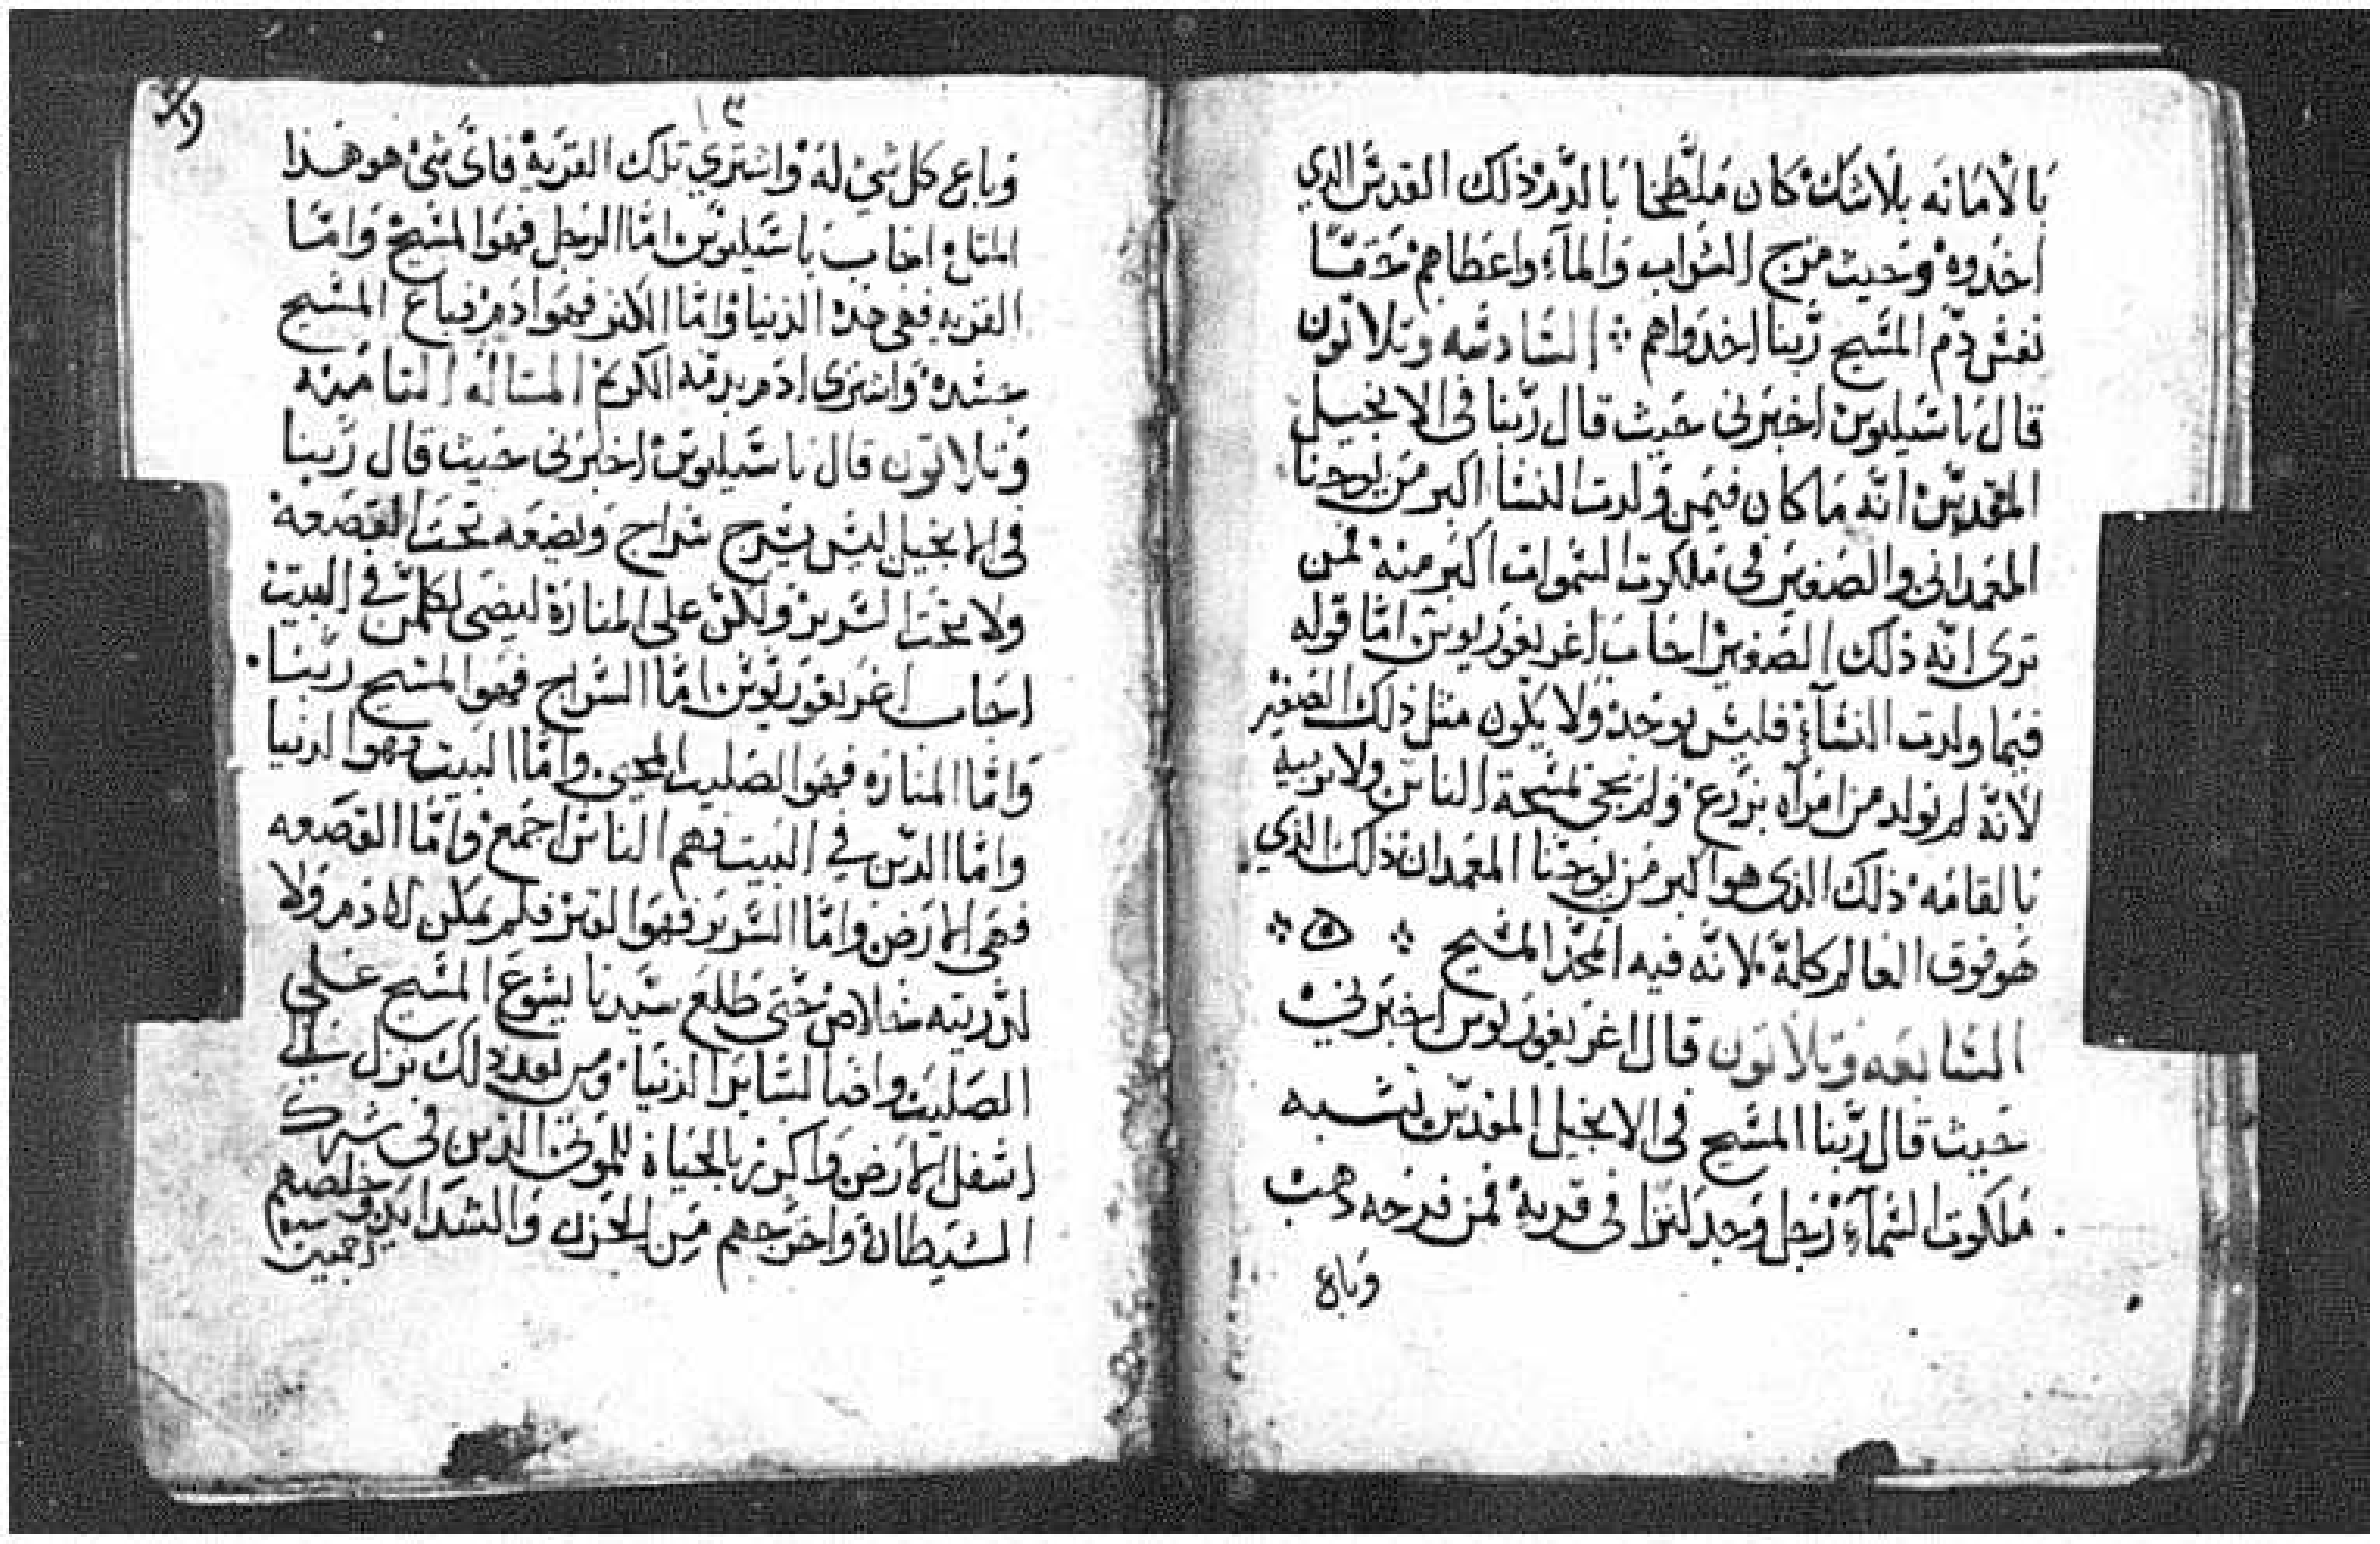 بالامانه بلاشك كان ملطخا بالدم ذلك القدس الدي
اخدوه وحيث مزج الشراب والمآء واعطاهم حقا
نفس دم المسيح ربنا اخدواهم ⁘ السادسه وتلاتون
قال باسيليوس اخبرني حيث قال ربنا في الانجيل
المقدس انه ما كان فيمن ولدت النسا اكبر من يوحنا
المعمداني والصغير في ملكوت السموات اكبر منه فمن
ترى انه ذلك الصغير اجاب اغريغوريوس اما قوله
فيما ولدت النسآء فليس يوجد ولا يكون مثل ذلك الصغير
لانه لم تولد من امراه بزرع ولم يجي لمسحة الناس ولا تربيه
بالقامه ذلك الذي هو اكبر من يوحنا المعمدان ذلك الذي
هو فوق العالم كله لانه فيه اتحد المسيح ⁘ ⁘
السابعه وتلاتون قال اغريغوريوس اخبرني
حيث قال ربنا المسيح في الانجيل المقدس تشبه
ملكوت السمآء رجل وجد كنزا في قريه فمن فرحه دهب
وباع
١٣
وباع كل شي له واشتري تلك القريه فاى شي هو هذا
المتاع اجاب باسيليوس اما الرجل فهوا المسيح واما
القريه فهي هده الدنيا واما الكنز فهوا ادم فباع المسيح
جسده واشترى ادم بدمه الكريم المساله التامنه
وتلاتون قال باسيليوس اخبرني حيث قال ربنا
في الانجيل ليس يسرج سراج ويضعه تحت القصعه
ولا تحت السرير ولكن على المناره ليضى لكلمن في البيت
اجاب اغريغوريوس اما السراج فهوا المسيح ربنا
واما المناره فهوا الصليب المحيي واما البيت فهوا الدنيا
واما الدين في البيت فهم الناس اجمع واما القصعه
فهي الارض واما السرير فهوا القبر فلم يمكن لادم ولا
لدريته خلاص حتى طلع سيدنا يسوع المسيح على
الصليب واضا لساير الدنيا ومن بعد دلك نزل الي
اسفل الارض واكرز بالحياة للموتى الذين في شرك
الشيطان واخرجهم من الحزن والشدايد وخلصهم